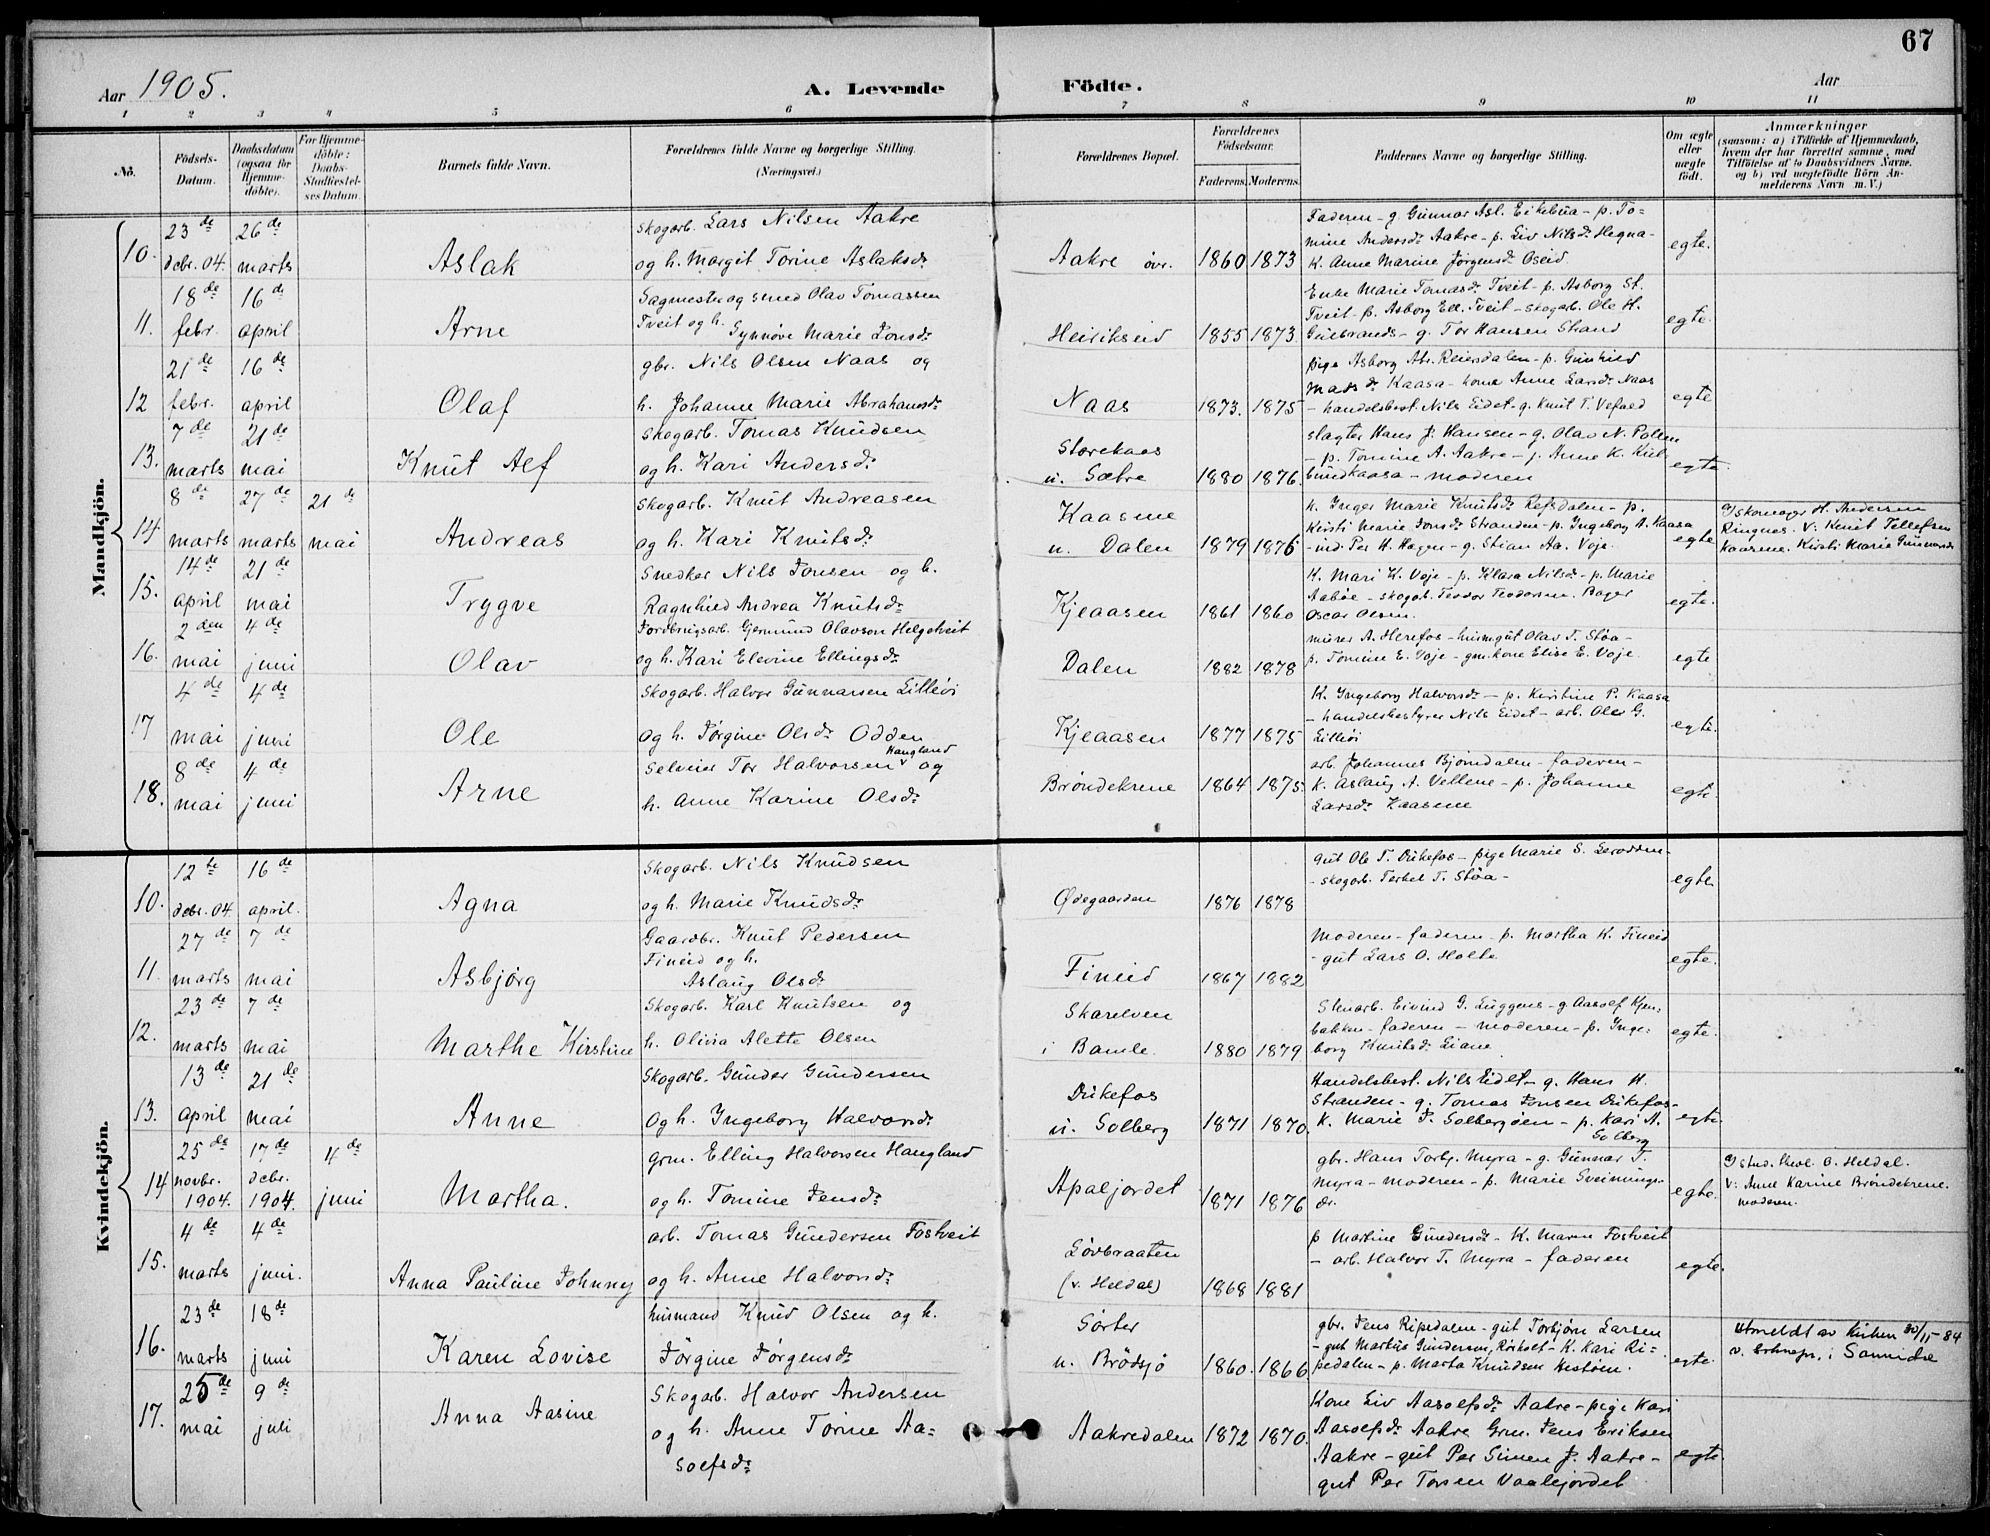 67
Aar 1905.
A. Levende Födte.
Aar
1 2 3 4 5 6 7 8 9 10 11
No.
Födsels-Datum.
Daabsdatum (ogsaa for Hjemmedöbte).
For Hjemmedöbte: Daabs-Stadfæstelses Datum.
Barnets fulde Navn.
Forældrenes fulde Navne og borgerlige Stilling. (Næringsvei.)
Forældrenes Bopæl.
Forældrenes Födselsaar.
Faderens. Moderens.
Faddernes Navne og borgerlige Stilling.
Om ægte eller uægte födt.
Anmærkninger
(saasom: a) i Tilfælde af Hjemmedaab,
hvem der har forrettet samme, med
Tilföielse af to Daabsvidners Navne.
og b) ved uægtefödte Börn Anmelderens Navn m. V.)
Mandkjön.
10. 23de decbr. 04. 26de marts
Aslak
Skogarb. Lars Nilsen Aakre
og h. Margit Torine Aslaksdr
Aakre øvr. 1860 1873
Faderen - g. Gunnar Asl. Eikebua - p. To=
mine Andersdr Aakre - p. Liv Nilsdr Hegna -
K. Anne Marine Jørgensdr Oseid
egte.
11. 18de febr. 16de april
Arne
Sagmester og smed Olav Tomassen
Tveit og h. Synnøve Marie Jonsdr
Heirikseid 1855 1873
Enke Marie Tomasdr Tveit - p. Asborg St.
Tveit - p. Asborg Ell. Tveit - skogarb. Ole H.
Gulbrands - g. Tor Hansen Strand
egte.
12 21de febr. 16de april
Olaf
gbr. Nils Olsen Naas og
h. Johanne Marie Abrahamsdr
Naas 1873. 1875
pige Asborg Abr. Reiersdalen - p. Gunhild
Madsdr Kaasa - kone Anne Larsdr Naas
- handelsbest. Nils Eidet - g. Knut T. Vefald
egte
13. 7de marts 21de mai
Knut Alf
Skogarb. Tomas Knudsen
og h. Kari Andersdr
Storekaas
u. Sætre 1880 1876.
slagter Hans J. Hansen - g. Olav N. Pollen
- p. Tomine A. Aakre - p. Anne K. Kil
bundkaasa - moderen
egte.
14 8de marts 27de marts 21de mai
Andreas
Skogarb. Knut Andreasen
og h. Kari Knutsdr
Kaasene
u. Dalen 1879 1876
k. Inger Marie Knutsdr Refsdalen - p.
Kirsti Marie Jonsdr Stranden - p. Ingeborg A. Kaasa
- ind. Per H. Hagen - g. Stian Aa. Voje.
egte
H. Andersen
Ringnes. V: Knut Tellefsen
Kaasene. Kirsti Marie Gunnarsdr
15. 14de april 21de mai
Trygve
Snedker Nils Jonsen og h.
Ragnhild Andrea Knutsdr
Kjeaasen 1861 1860
K. Mari K. Voje - p. Klara Nilsdr - p. Marie
Aabøe - skogarb. Teodor Teodorsen. Bager
Oscar Olsen.
egte.
16. 2den mai 4de juni
Olav
Jordbrugsarb. Gjermund Olavson Helgetveit
og h. Kari Elevine Ellingsdr
Dalen 1882 1878
murer A. Herefos - husmgut Olav T. Støa -
p. Tomine E. Voje - gmkone Elise E. Voje.
egte
17 4de mai 4de juni
Ole
Skogarb. Halvor Gunnarsen Lilleöi
og h. Jørgine Olsdr Odden
Kjeaasen 1877 1875
K. Ingeborg Halvorsdr - p. Kirstine P. Kaasa
- handelsbestyrer Nils Eidet - arb. Olea G.
Lilleöi
egte.
18. 8de mai 4de juni
Arne
Selveier Tor Halvorsen Haugland og
h. Anne Karine Olsdr
Brøndekrene 1864 1875.
arb. Johannes Bjørndalen - faderen -
k. Aslaug A. Vellene - p. Johanne
Larsdr Kaasene
egte.
Kvindekjön.
10. 12te decbr. 04 16de april.
Agna
Skogarb. Nils Knudsen
og h. Marie Knudsdr
Ødegaarden 1876 1878
gut Ole T. Dukefos - pige Marie S.
- skogarb. Terkel T. Støa -
egte.
11. 27de marts 7de mai
Asbjørg
Gaardbr. Knut Pedersen
Fineid og h.
Aslaug Olsdr
Fineid 1867 1882
Moderen - faderen - p. Martha K. Fineid
- gut Lars O. Holte
egte.
12. 23de marts 7de mai
Marthe Kirstine
Skogarb. Karl Knutsen og
h. Olivia Alette Olsen
Skarelven
i Bamle. 1880 1879
Stenarb. Eivind G. Luggens - g Aasolf Kjen=
bakken - faderen - moderen - p. Inge=
borg Knutsdr Liane
egte.
13. 13de april 21de mai
Anne
Skogarb. Gunder Gundersen
og h. Ingeborg Halvorsdr
Dukefos
u. Solberg 1871 1870.
Handelsbest. Nils Eidet - g. Hans H.
Stranden - g. Tomas Jonsen Dukefos -
K. Marie J. Solbergöen - p. Kari A.
Solberg
egte
14 25de novbr. 1904. 17de decbr. 1904. 4de juni
Martha.
Grm. Elling Halvorsen Haugland
og h. Tomine Jensdr
Apaljordet 1871 1876
gbr. Hans Torbj. Myra - g. Gunnar T.
Myra - moderen - p. Marie Sveinungs-
dr.
egte.
stud. theol. O. Heldal.
V: Anne Karine Brøndekrene.
moderen.
15. 4de marts 4de juni.
Anna Pauline Johnny
arb. Tomas Gundersen Fostveit
og h. Anne Halvorsdr
Løvbraaten
(v. Heldal) 1868 1881
p Martine Gundersdr - K. Maren Fostveit
- arb. Halvor T. Myra - faderen
egte.
16. 23de marts 18de juni
Karen Lovise
husmand Knud Olsen og h.
Jørgine Jørgensdr
Sørter
u. Brødsjø 1860. 1866
gbr. Jens Ripedalen - gut Torbjørn Larsen
- gut Martus Gundersen, Rörholt - K. Kari Ri=
pedalen - p. Marta Knudsen Hestöen.
egte.
Utmeldt av kirken 30/11-84
v. Sokнepr. i Sannidal
17. 25de mai 9de juli
Anna Aasine
Skogarb. Halvor Andersen
og h. Anne Torine Aa=
solfsdr
Aakredalen 1872 1870.
Kone Liv Aasolfsdr Aakre - pige Kari
Aasolfsdr Aakre Grm. Jens Eriksen
Aakre - gut Per Simen J. Aakre -
gut Per Torsen Vaalejordet
egte.